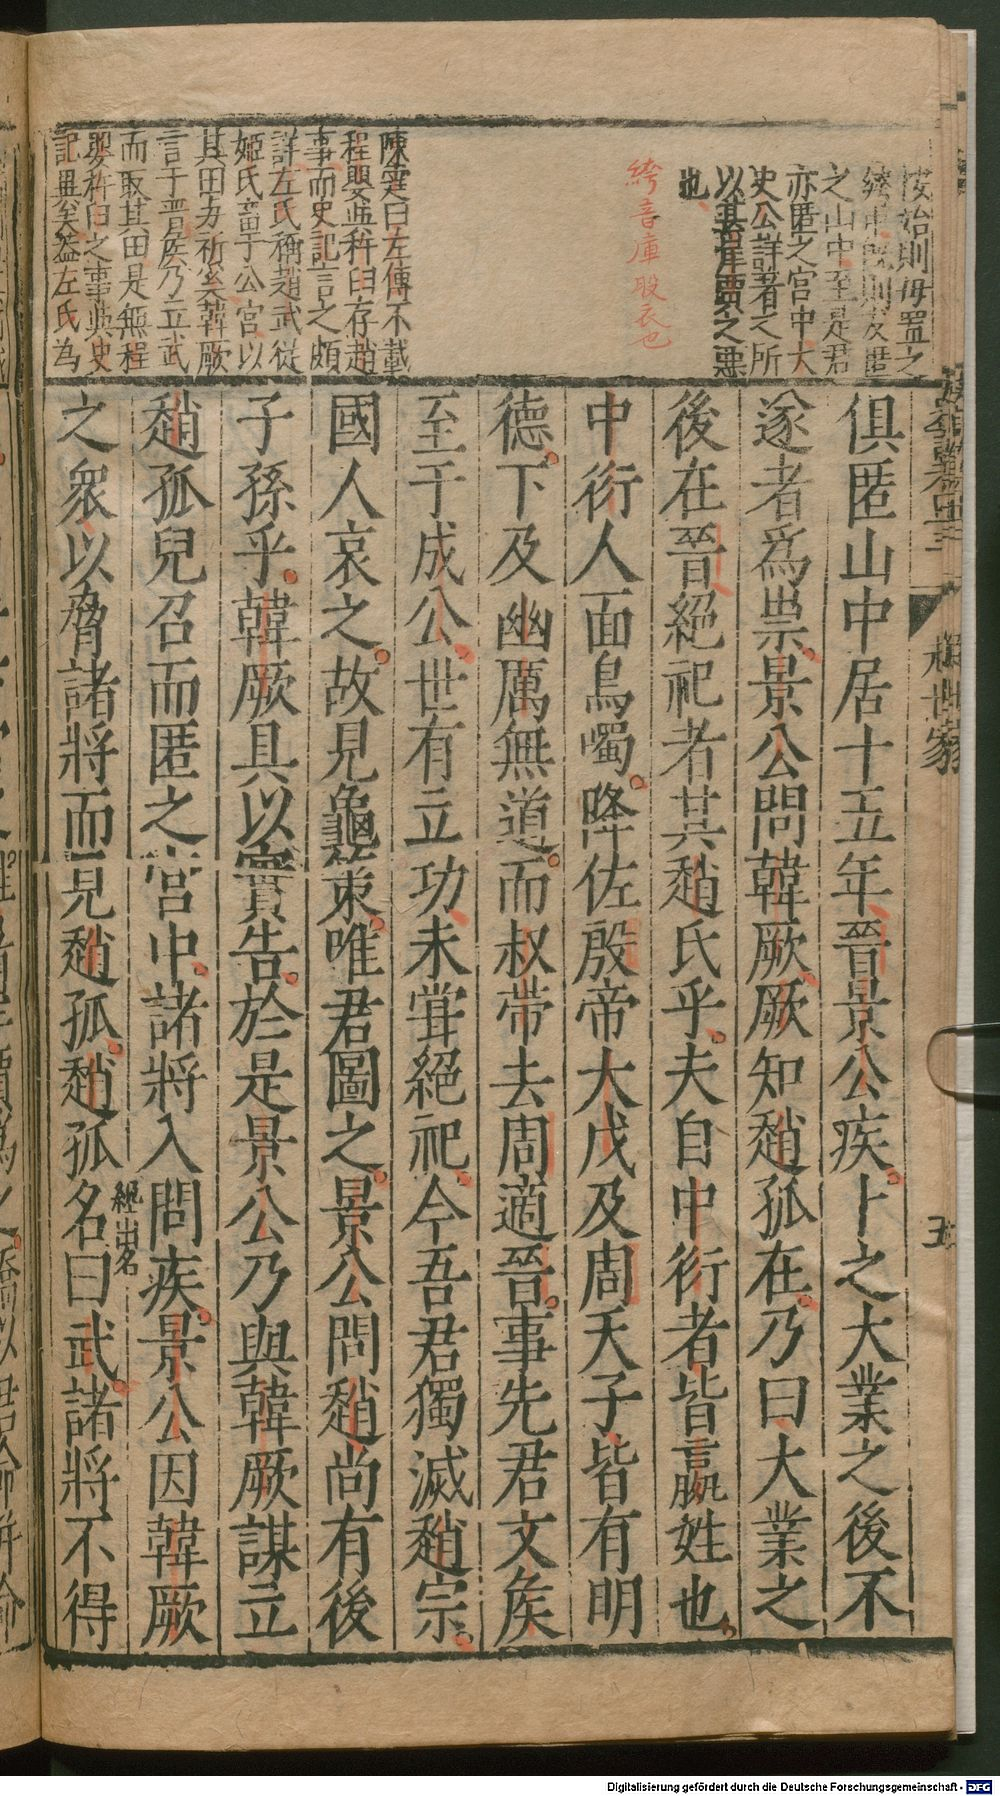 按始則毋置之
絝中既則友匿
之山中至是君
亦匿之宮中大
史公詳著之所
以甚岸賈之惡
也
絝音庫股衣也
陳霆曰左傳不載
程嬰杵臼存趙
事而史記言之頗
詳左氏稱趙武從
姬氏畜于公宮以
其田與祁奚韓厥
言于晉侯乃立武
而取其田是無程
嬰杵臼之事與史
記異矣蓋左氏為
俱匿山中居十五年晉景公疾卜之大業之後不
遂者爲祟景公問韓厥厥知趙孤在乃曰大業之
後在晉絕祀者其趙氏乎夫自中衍者皆嬴姓也
中衍人面鳥噣降佐殷帝大戊及周天子皆有明
德下及幽厲無道而叔帶去周適晉事先君文侯
至于成公世有立功未甞絕祀今吾君獨滅趙宗
國人哀之故見龜策唯君圖之景公問趙尚有後
子孫乎韓厥具以實告於是景公乃與韓厥謀立
趙孤兒召而匿之宮中諸將入問疾景公因韓厥
之衆以脅諸將而見趙孤趙孤名曰武諸將不得
趙世家
五
Digitalisierung gefördert durch die Deutsche Forschungsgemeinschaft - DFG